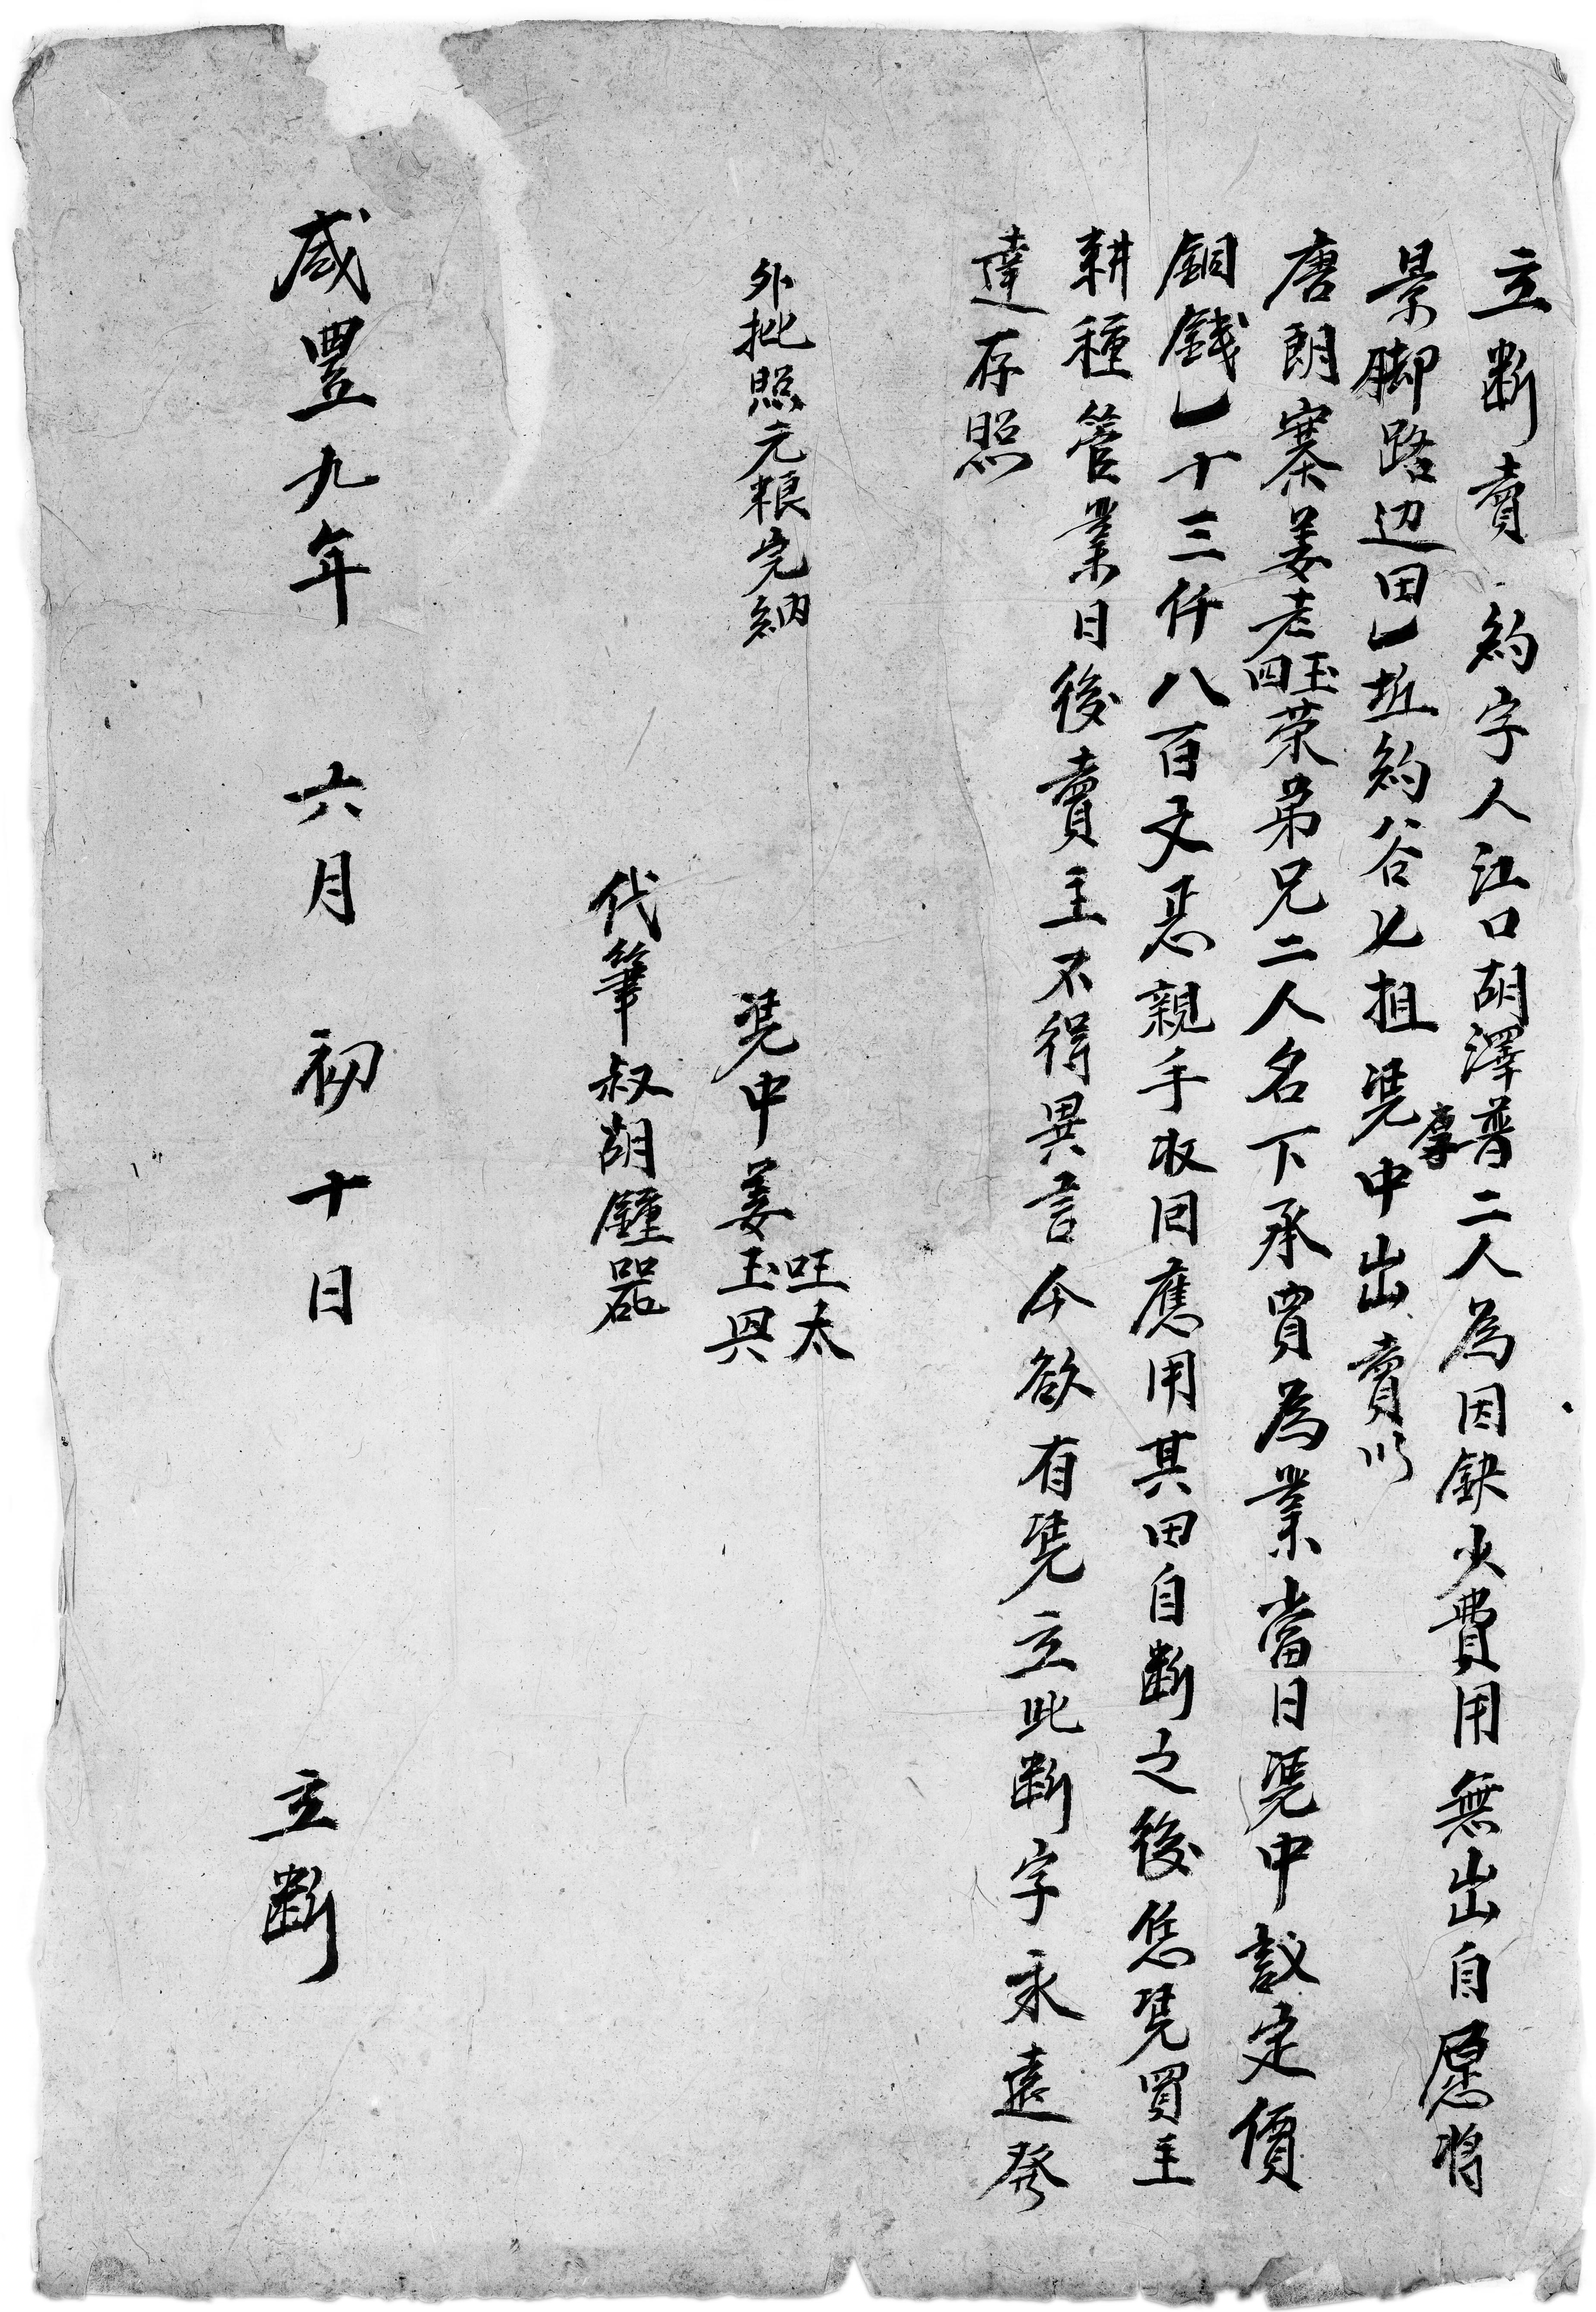 立断賣約字人江口胡澤普厚二人為因缺少費用無出自愿将
景脚路辺田乚坵約谷乂担凴中出賣以
唐朗寨姜老四玉荣弟兄二人名下承買為業當日凴中議定價
銅錢乚十三仟八百文悉親手收回應用其田自断之後恁凴買主
耕種管業日後賣主不得異言今欲有凴立此断字永遠發
達存照
外批照元粮完納
凴中姜旺太玉興
代筆叔胡鐘器
咸豐九年六月初十日立断